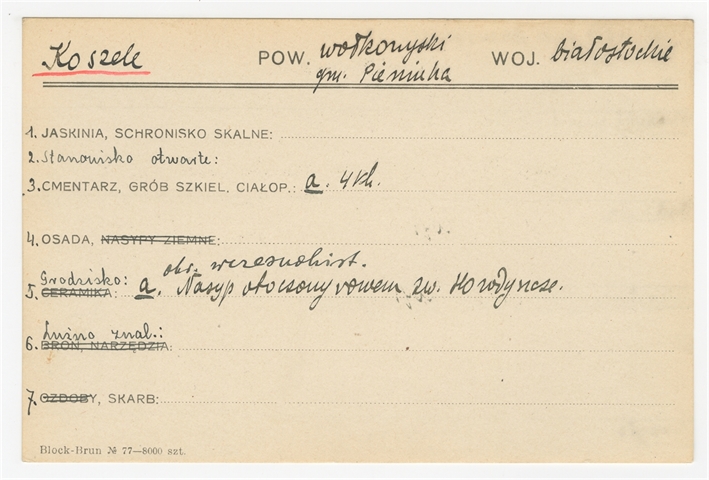 Koszele POW. wołkowyski WOJ. białostockie
gm. Pieniuha
1. JASKINIA, SCHRONISKO SKALNE:
2. Stanowisko otwarte:
3. CMENTARZ, GRÓB SZKIEL. CIAŁOP.: a. 4 kh.
4. OSADA, NASYPY ZIEMNE:
okr. wczesnohist.
Grodzisko:
5. CERAMIKA: a. Nasyp otoczony rowem zw.
Luźno znal.:
6. BROŃ, NARZĘDZIA:
7. OZDOBY, SKARB:
Block-Brun № 77—8000 szt.